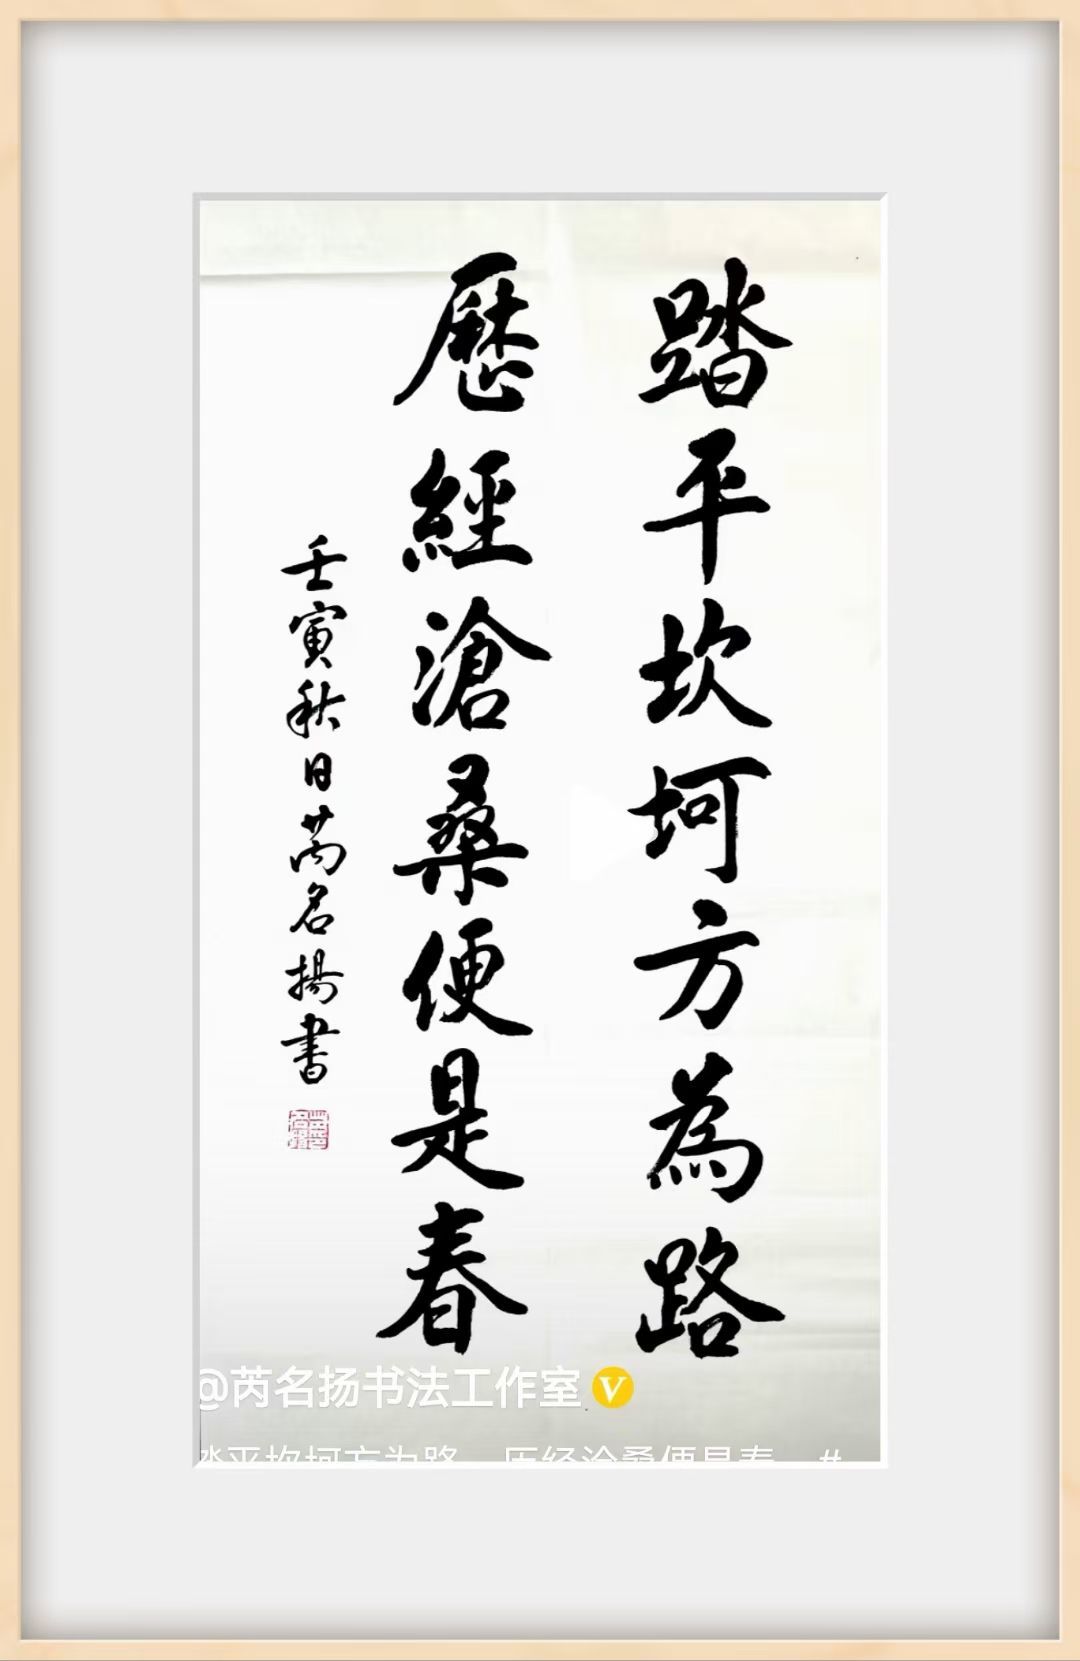 踏平坎坷方為路
歷經滄桑便是春
壬寅秋日芮名揚書
@芮名扬书法工作室
踏平坎坷方为路 历经沧桑便是春 #